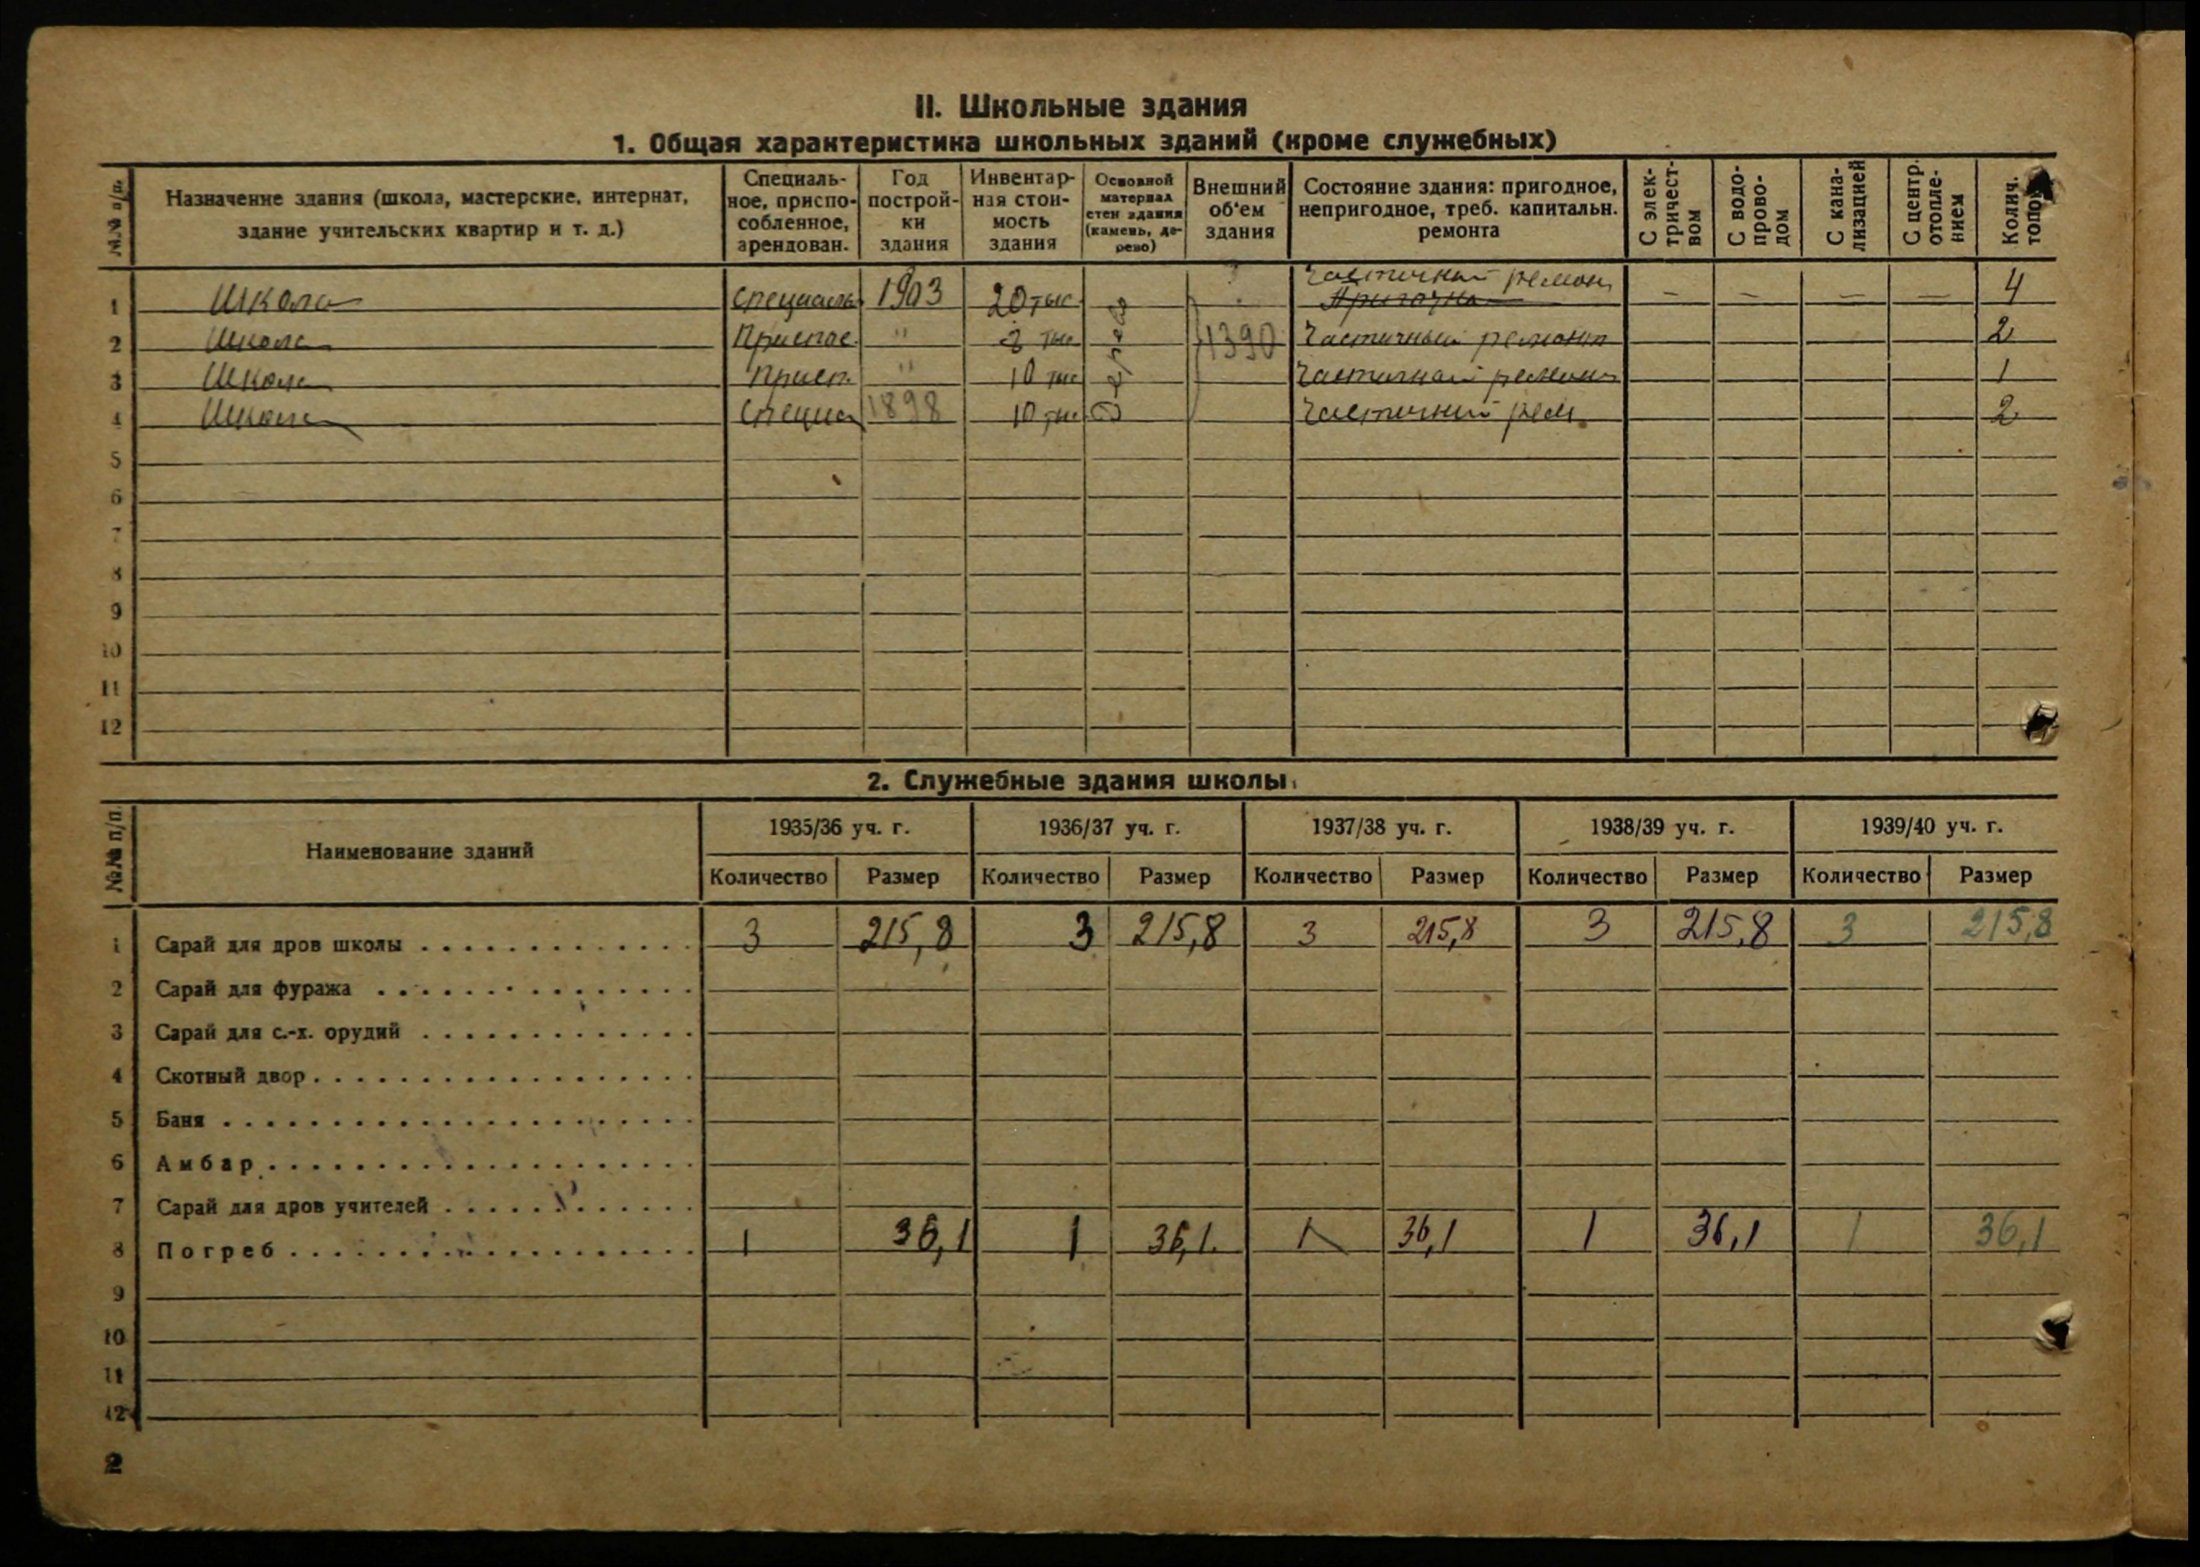 II. Школьные здания
1. Общая характеристика школьных зданий (кроме служебных)
№№ п/п. Назначение здания (школа, мастерские, интернат, здание учительских квартир и т. д.) Специаль-ное, приспо-собленное, арендован. Год построй-ки здания Инвентар-ная стои-мость здания Основной материал стен здания (камень, де-рево) Внешний об'ем здания Состояние здания: пригодное, непригодное, треб. капитальн. ремонта С элек-тричест-вом С водо-прово-дом С кана-лизацией С центр. отопле-нием Колич. топок
1 Школа специаль 1903 20 тыс. Дерево 1390 Частичный ремонт — — — — 4
2 Школа Приспос. " тыс Частичный ремонт 2
3 Школа Присп. " 10 тыс Частичный ремонт 1
4 Школа Специа 1898 10 тыс Частичный рем. 2
5
6
7
8
9
10
11
12
2. Служебные здания школы
№№ п/п. Наименование зданий 1935/36 уч. г. 1936/37 уч. г. 1937/38 уч. г. 1938/39 уч. г. 1939/40 уч. г.
Количество Размер Количество Размер Количество Размер Количество Размер Количество Размер
1 Сарай для дров школы 3 215,8 3 215,8 3 215,8 3 215,8 3 215,8
2 Сарай для фуража
3 Сарай для с.-х. орудий
4 Скотный двор
5 Баня
6 Амбар
7 Сарай для дров учителей
8 Погреб 1 36,1 1 36,1. 1 36,1 1 36,1 1 36,1
9
10
11
12
2